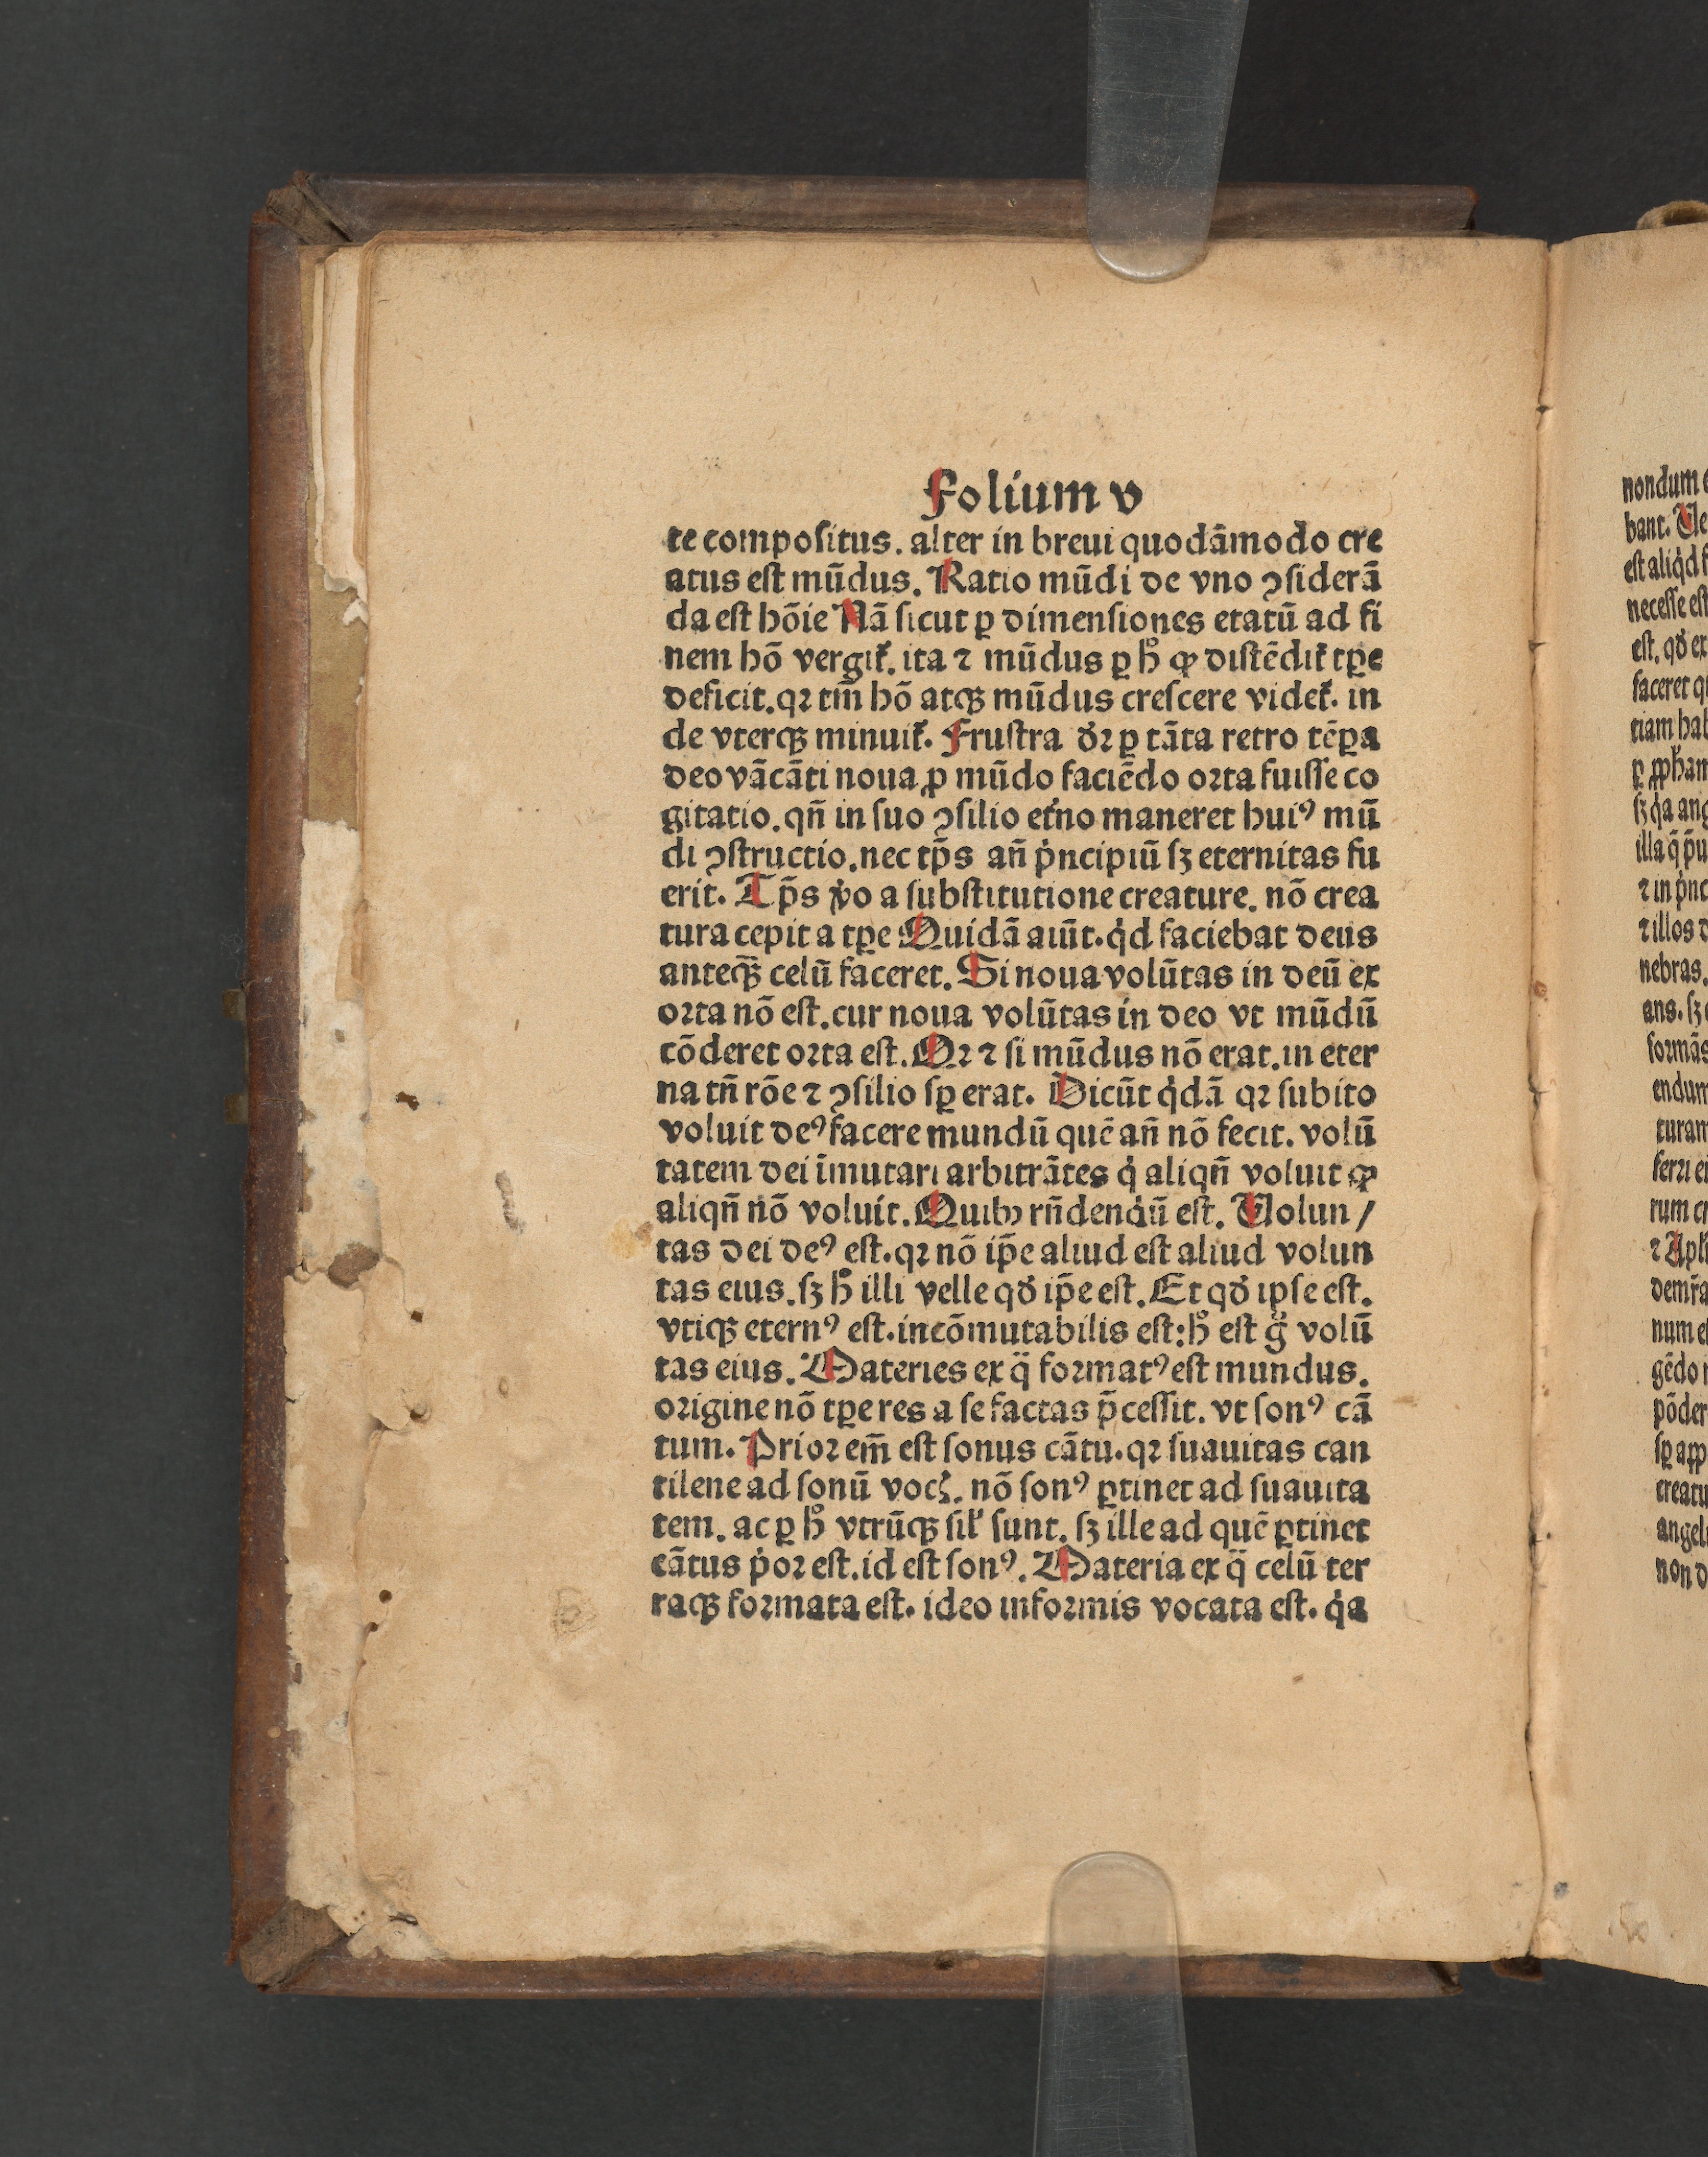 Folium v
te compoſitus. alter in breui quodāmodo cre
atus eſt mūdus. Ratio mūdi de vno ↄſiderā
da eſt hōie Nā ſicut ꝑ dimenſiones etatū ad fi
nem hō vergit᷑. ita ⁊ mūdus ꝑ hͦ ꝙ diſtēdit᷑ tꝑe
deficit. qꝛ tm̄ hō atqꝫ mūdus creſcere videt᷑. in
de vterqꝫ minuit᷑. Fruſtra d̓ꝛ ꝑ tāta retro tēꝑa
deo vācāti noua ꝓ mūdo faciēdo oꝛta fuiſſe co
gitatio. qn̄ in ſuo ↄſilio et̓no maneret huiꝰ mū
di ↄſtructio. nec tp̄s an̄ pͥncipiū ſꝫ eternitas fu
erit. Tp̄s v̓o a ſubſtitutione creature. nō crea
tura cepit a tꝑe Quidā aiūt. qͥd faciebat deus
anteqꝫ̄ celū faceret. Si noua volūtas in deū ex
oꝛta nō eſt. cur noua volūtas in deo vt mūdū
cōderet oꝛta eſt. Qꝛ ⁊ ſi mūdus nō erat. in eter
na tn̄ rōe ⁊ ↄſilio ſꝑ erat. Dicūt qͥdā qꝛ ſubito
voluit deꝰ facere mundū quē an̄ nō fecit. volū
tatem dei īmutari arbitrātes qͥ aliqn̄ voluit ꝙ
aliqn̄ nō voluit. Quibꝰ rn̄dendū eſt. Volun/
tas dei deꝰ eſt. qꝛ nō ip̄e aliud eſt aliud volun
tas eius. ſꝫ hͦ illi velle qd̓ ip̄e eſt. Et qd̓ ipſe eſt.
vtiqꝫ eternꝰ eſt. incōmutabilis eſt: hͦ eſt gͦ volū
tas eius. Materies ex qᷓ foꝛmatꝰ eſt mundus.
oꝛigine nō tꝑe res a ſe factas p̄ceſſit. vt ſonꝰ cā
tum. Prioꝛ em̄ eſt ſonus cātu. qꝛ ſuauitas can
tilene ad ſonū vocꝭ. nō ſonꝰ ꝑtinet ad ſuauita
tem. ac ꝑ hͦ vtrūqꝫ ſil̓ ſunt. ſꝫ ille ad quē ꝑtinet
cātus pͥoꝛ eſt. id eſt ſonꝰ. Materia ex qᷓ celū ter
raqꝫ foꝛmata eſt. ideo infoꝛmis vocata eſt. qͥa
nondum
bant.
eſt aliqͥd
neceſſe eſt
eſt. qd̓ ex
faceret
illa
nebras.
endum
creatu